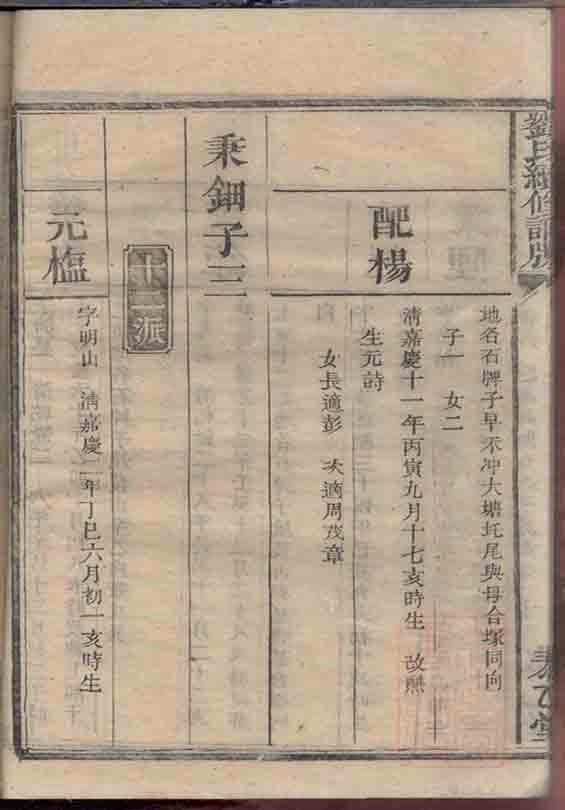 劉氏續修譜牒
地名石牌子早禾冲大塘坵尾與母合塚同向
子一 女二
配楊
清嘉慶十一年丙寅九月十七亥時生 改熊
生元詩
女長適彭 次適周茂章
秉鈿子三
十二派
元榲
字明山 清嘉慶二年丁巳六月初一亥時生